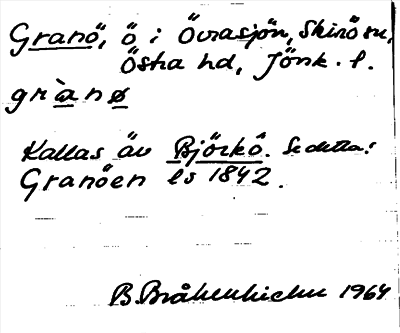 Granö, ö i Övrasjön, Skirö sn,
Östra hd, Jönk. l.
grànø
Kallas äv Björkö. Se detta!
Granöen ls 1842.
B. Bråkenhielm 1964